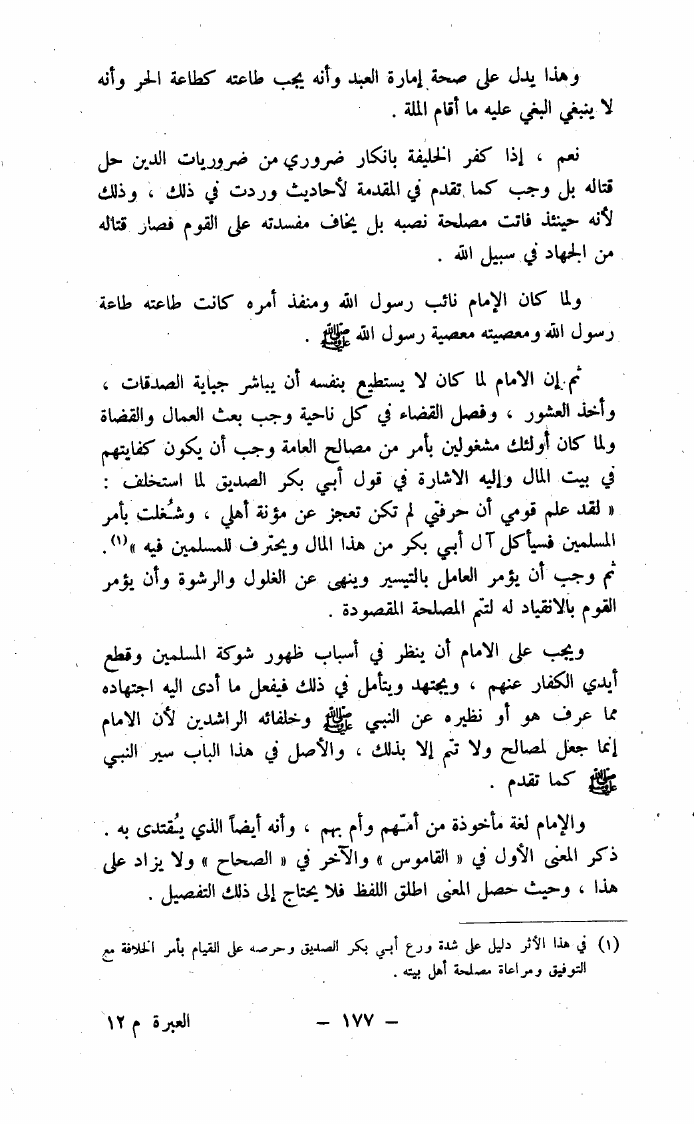 وهذا يدل على صحة إمارة العبد وأنه يجب طاعته كطاعة الحر وأنه
لا ينبغي البغي عليه ما أقام الملة .
نعم ، إذا كفر الخليفة بانكار ضروري من ضروريات الدين حل
قتاله بل وجب كما تقدم في المقدمة لأحاديث وردت في ذلك ، وذلك
لأنه حينئذ فاتت مصلحة نصبه بل يخاف مفسدته على القوم فصار قتاله
من الجهاد في سبيل الله .
ولما كان الإمام نائب رسول الله ومنفذ أمره كانت طاعته طاعة
رسول الله ومعصيته معصية رسول الله ﷺ .
ثم إن الامام لما كان لا يستطيع بنفسه أن يباشر جباية الصدقات ،
وأخذ العشور ، وفصل القضاء في كل ناحية وجب بعث العمال والقضاة
ولما كان أولئك مشغولين بأمر من مصالح العامة وجب أن يكون كفايتهم
في بيت المال وإليه الاشارة في قول أبي بكر الصديق لما استخلف :
« لقد علم قومي أن حرفتي لم تكن تعجز عن مؤنة أهلي ، وشُغلت بأمر
المسلمين فسيأكل آل أبي بكر من هذا المال ويحترف للمسلمين فيه »(١).
ثم وجب أن يؤمر العامل بالتيسير وينهى عن الغلول والرشوة وأن يؤمر
القوم بالانقياد له لتتم المصلحة المقصودة .
ويجب على الامام أن ينظر في أسباب ظهور شوكة المسلمين وقطع
أيدي الكفار عنهم ، ويجتهد ويتأمل في ذلك فيفعل ما أدى اليه اجتهاده
مما عرف هو أو نظيره عن النبي ﷺ وخلفائه الراشدين لأن الامام
إنما جعل لمصالح ولا تتم إلا بذلك ، والأصل في هذا الباب سير النبي
ﷺ كما تقدم .
والإمام لغة مأخوذة من أمّهم وأم بهم ، وأنه أيضاً الذي يُقتدى به .
ذكر المعنى الأول في « القاموس » والآخر في « الصحاح » ولا يزاد على
هذا ، وحيث حصل المعنى اطلق اللفظ فلا يحتاج إلى ذلك التفصيل .
(١) في هذا الأثر دليل على شدة ورع أبي بكر الصديق وحرصه على القيام بأمر الخلافة مع
التوفيق ومراعاة مصلحة أهل بيته .
– ١٧٧ – العبرة م ١٢